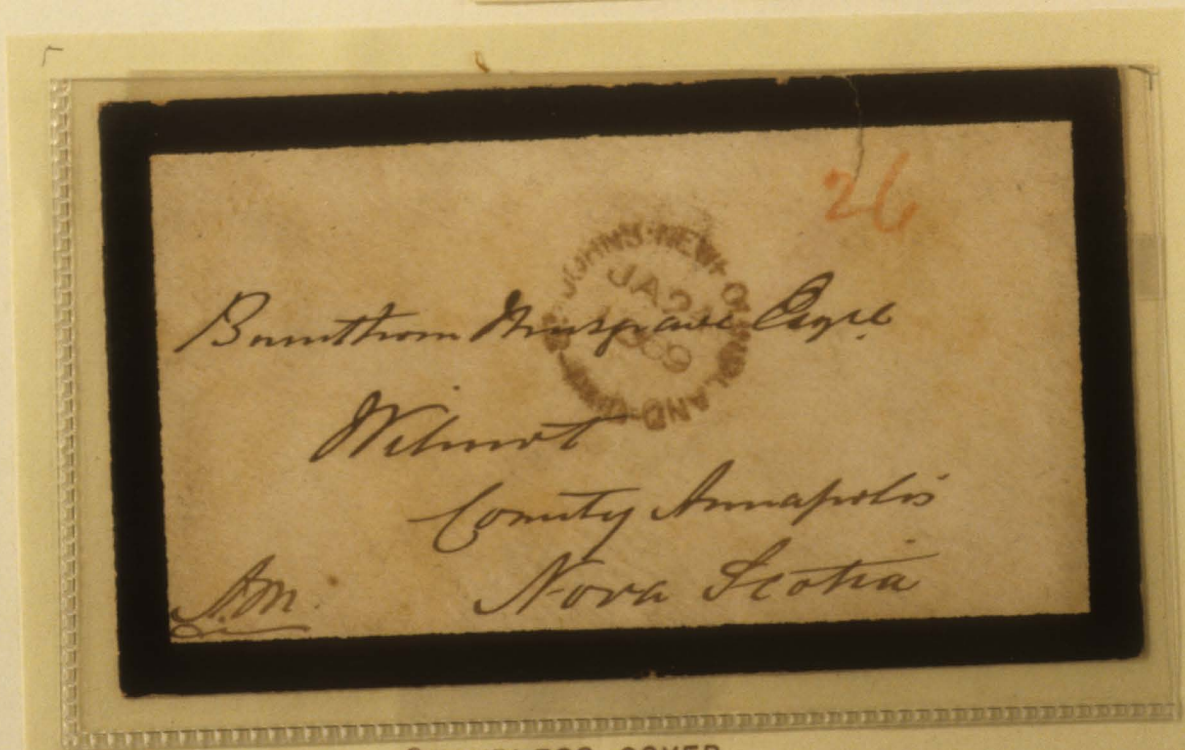 26
ST JOHN'S·NEWFOUNDLAND·
JA 2
1869
Musgrave Esqre
Wilmot
County Annapolis
Nova Scotia
A.M.
COVER